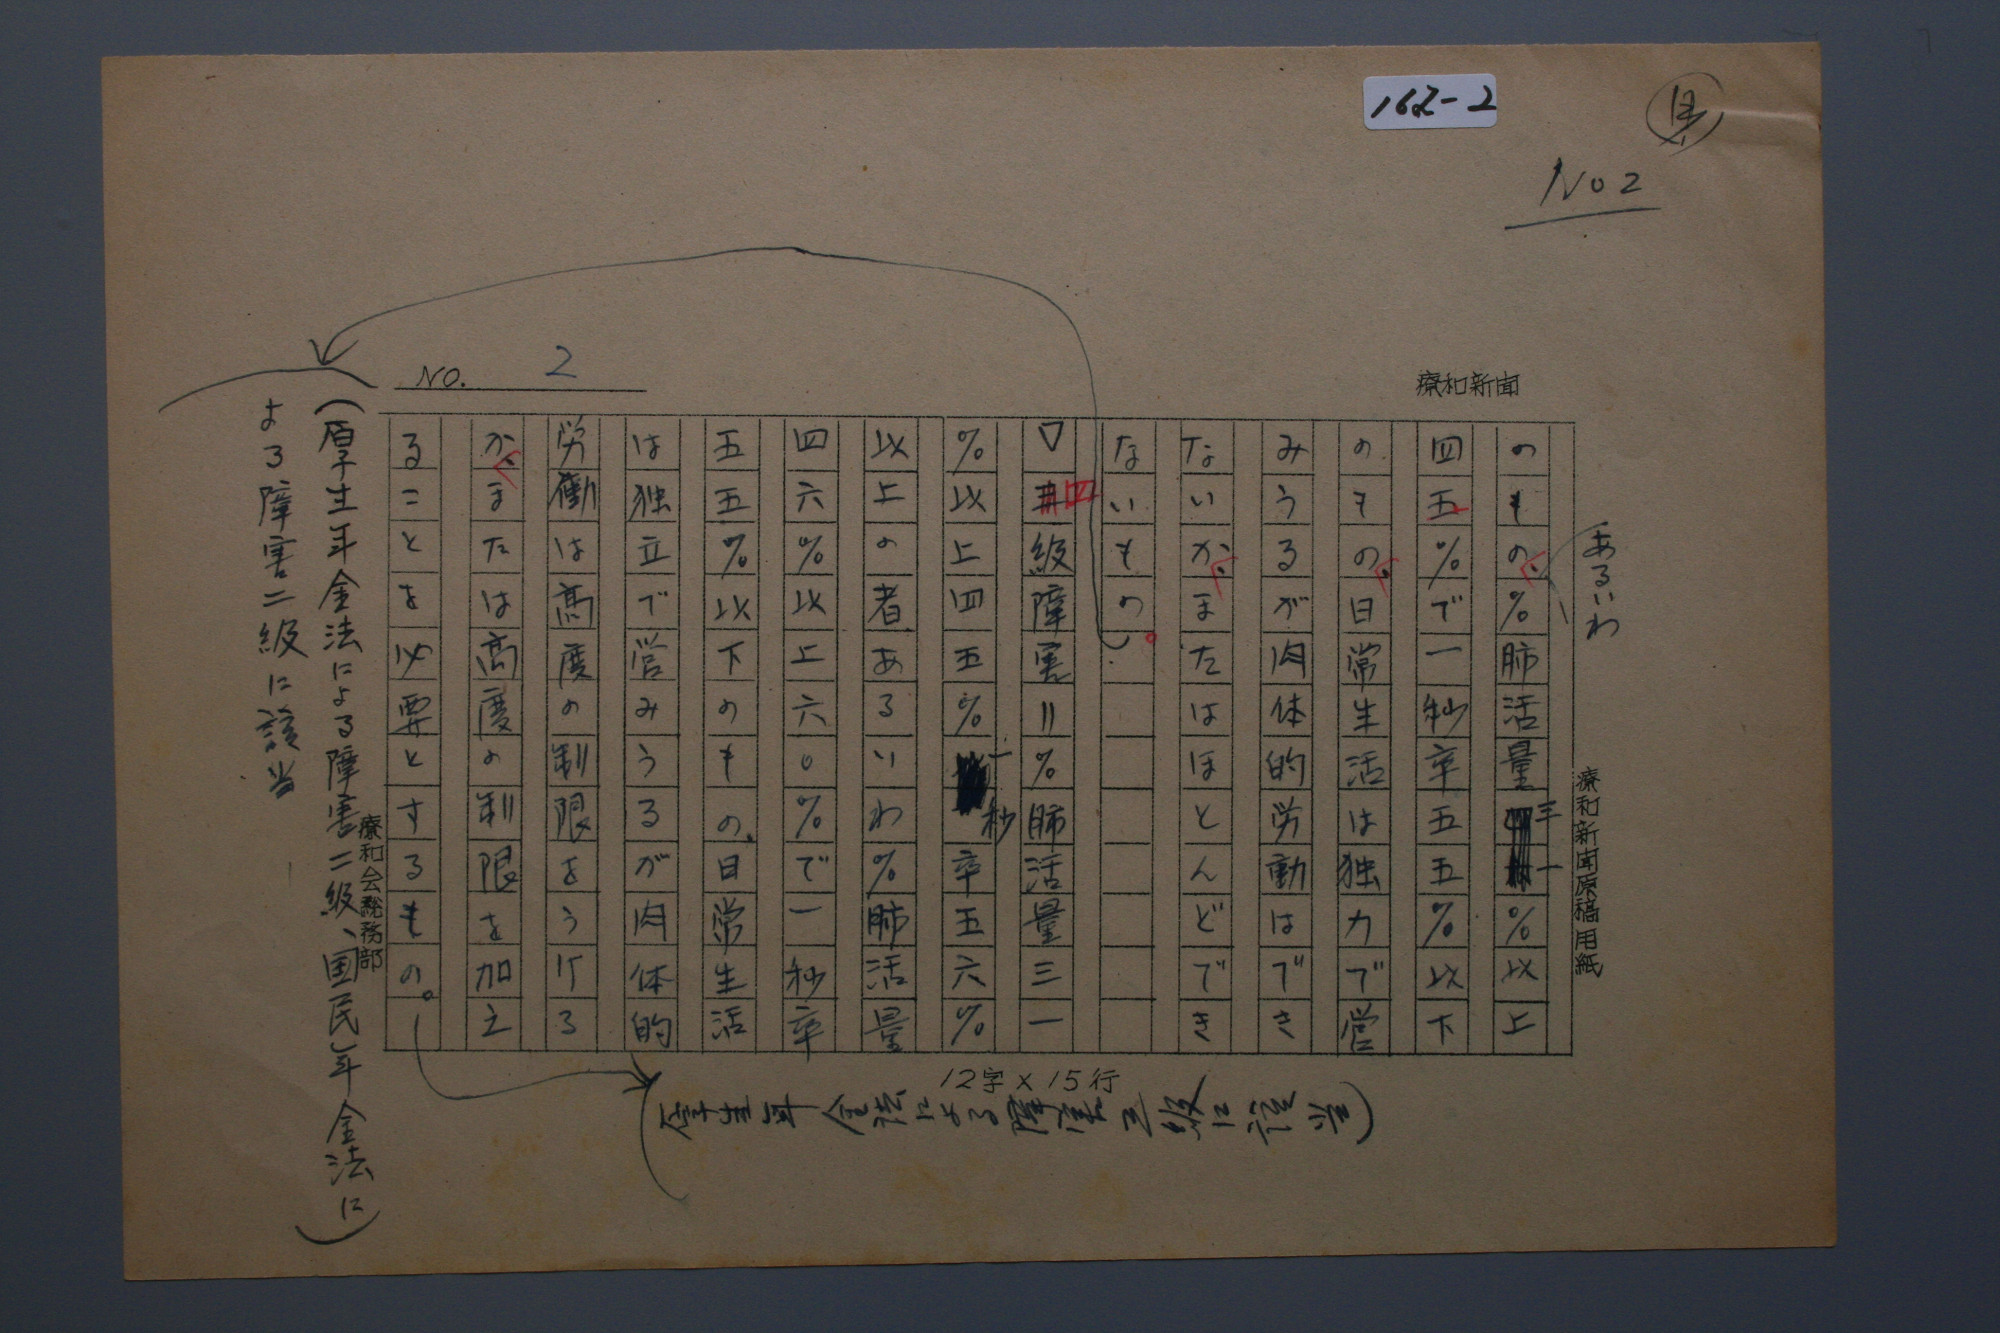 162-2
No 2
療和新聞
NO. 2
療和新聞原稿用紙
あるいわ
のもの、%肺活量三一%以上
四五%で一秒率五五%以下
のもの、日常生活は独力で営
みうるが肉体的労働はでき
ないか、またはほとんどでき
ないもの。
▽四級障害=%肺活量三一
%以上四五%一秒率五六%
以上の者あるいわ%肺活量
四六%以上六〇%で一秒率
五五%以下のもの、日常生活
は独立で営みうるが肉体的
労働は高度の制限をうける
か、または高度の制限を加え
ることを必要とするもの。
療和会総務部
(厚生年金法による障害二級、国民年金法に
よる障害二級に該当)
12字×15行
(厚生年金法による障害三級に該当)